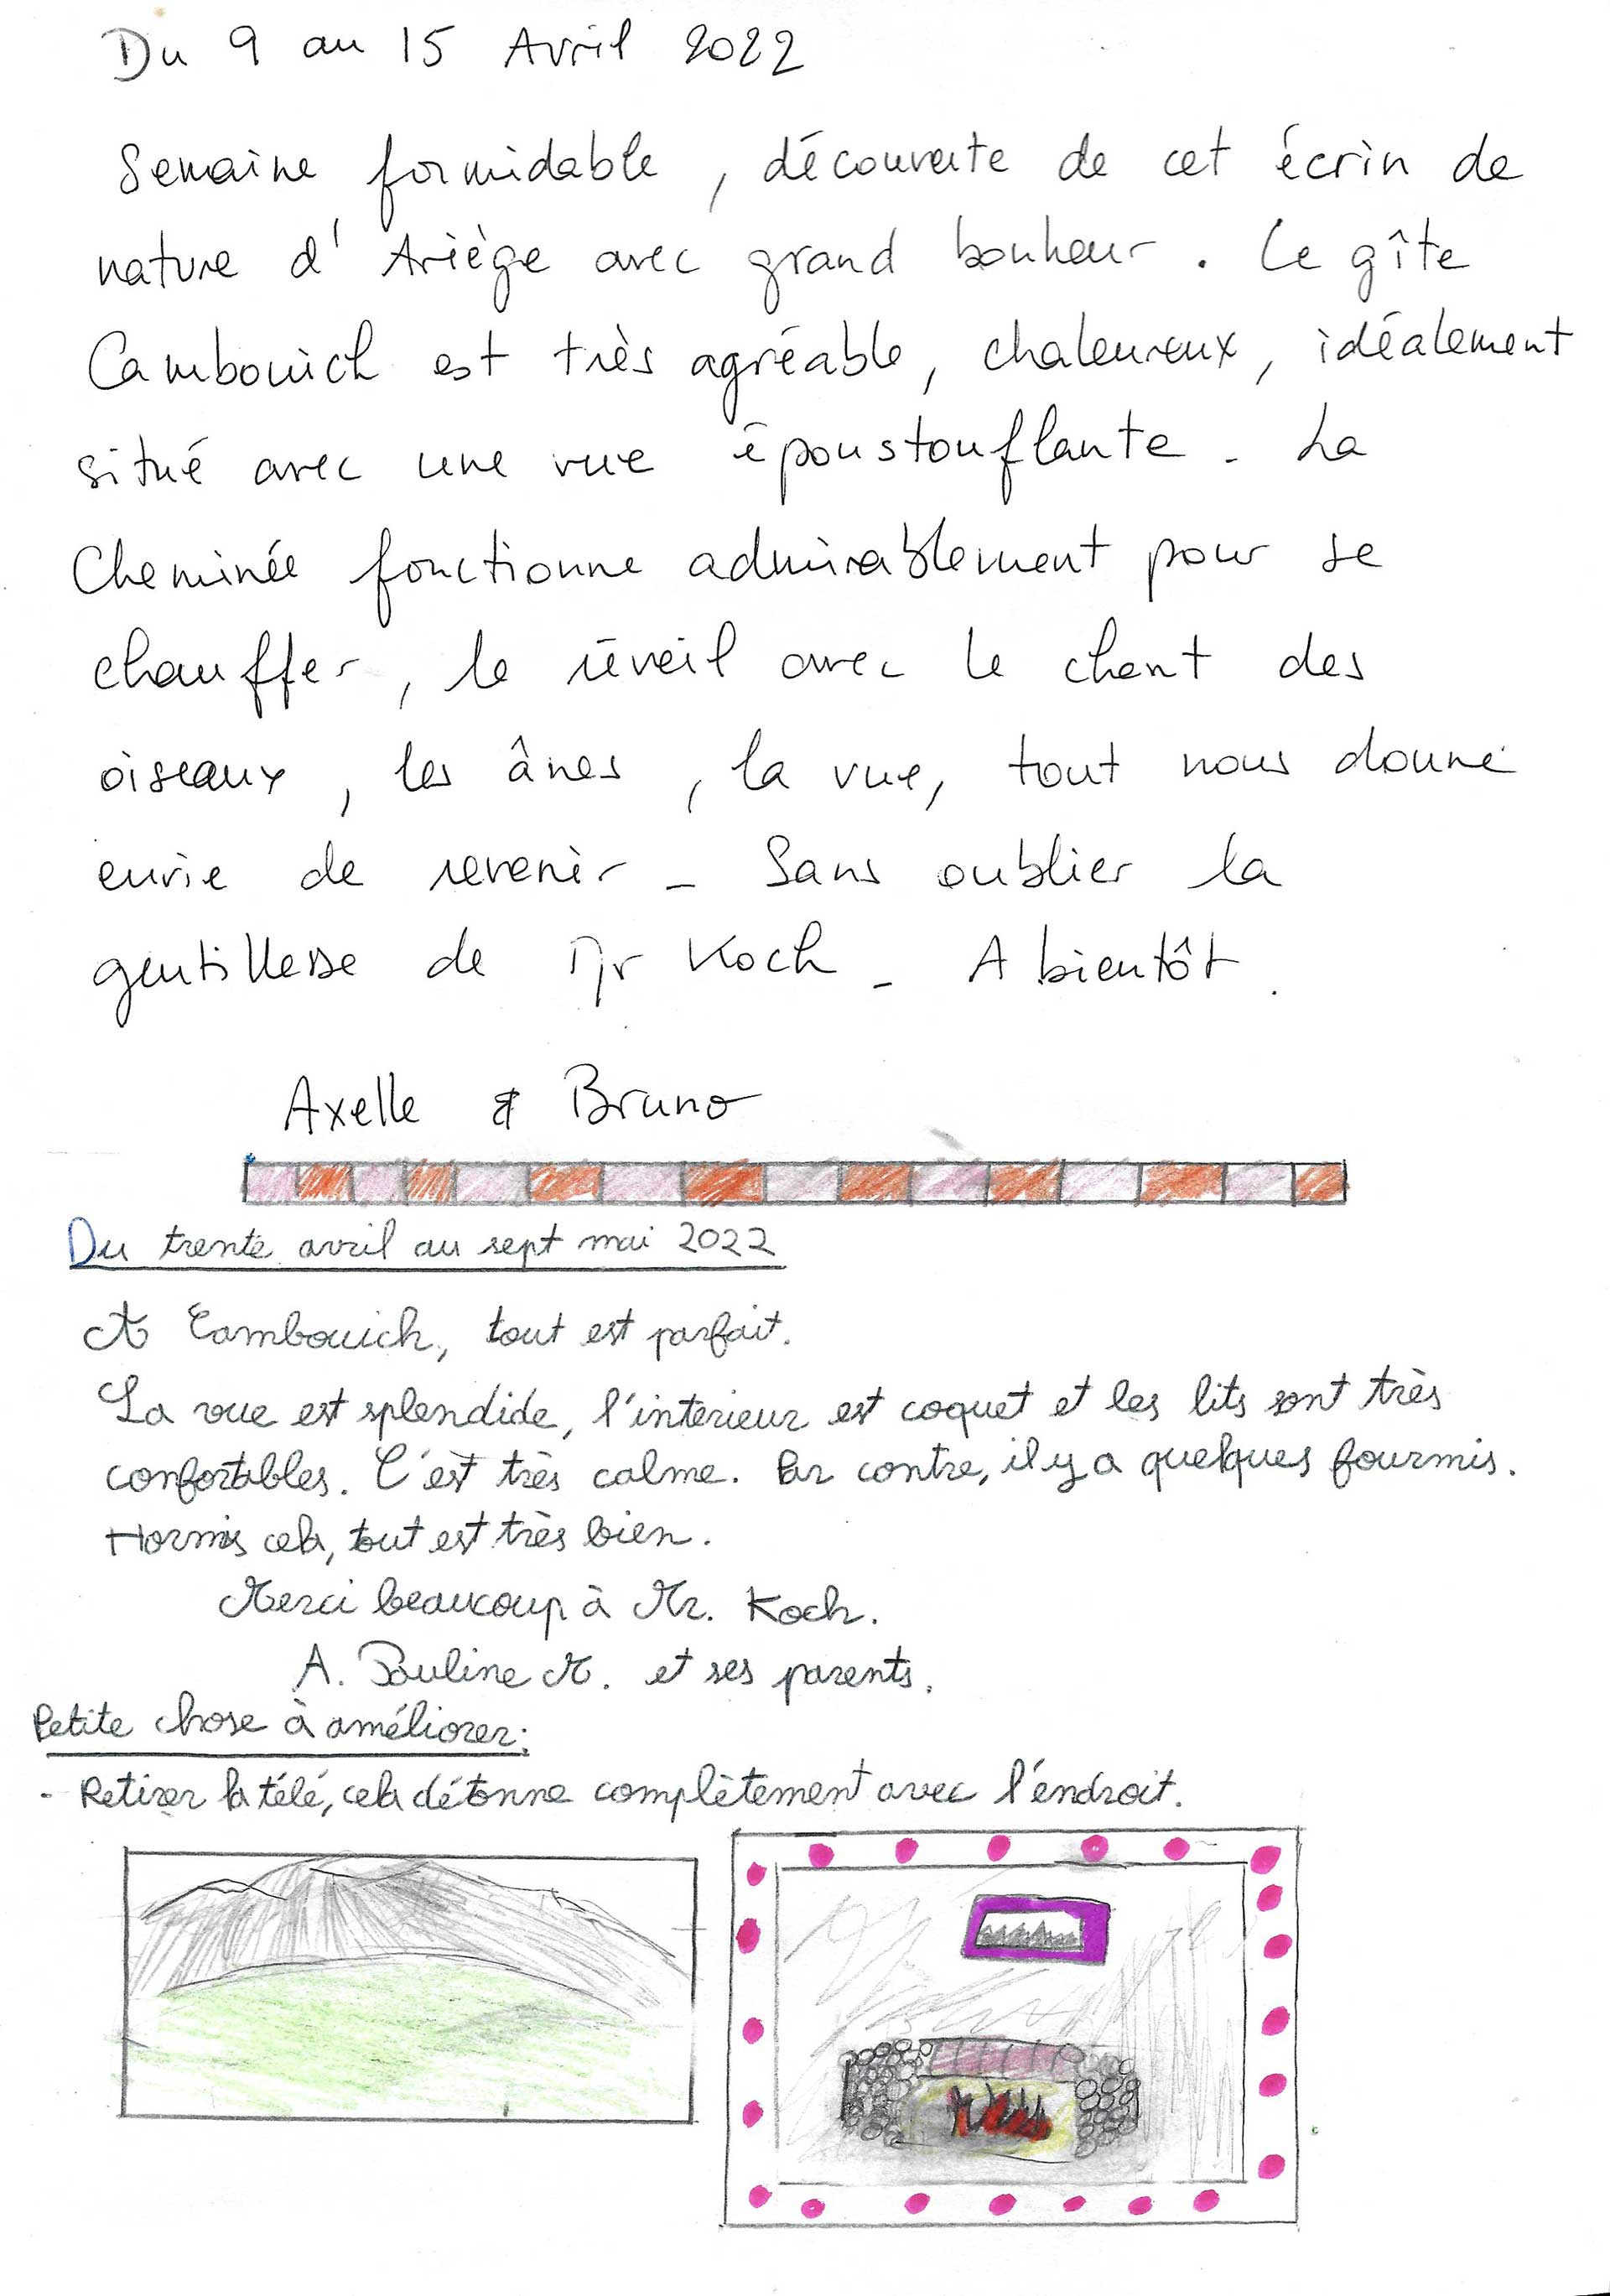 Du 9 au 15 Avril 2022
Semaine formidable, découverte de cet écrin de
nature d'Ariège avec grand bonheur. Le gîte
Cambouich est très agréable, chaleureux, idéalement
situé avec une vue époustouflante. La
Cheminée fonctionne admirablement pour se
chauffer, le réveil avec le chant des
oiseaux, les ânes, la vue, tout nous donne
envie de revenir - Sans oublier la
gentillesse de Mr Koch - A bientôt.
Axelle & Bruno
Du trente avril au sept mai 2022
A Cambouich, tout est parfait.
La vue est splendide, l'intérieur est coquet et les lits sont très
confortables. C'est très calme. Par contre, il y a quelques fourmis.
Hormis cela, tout est très bien.
Merci beaucoup à Mr. Koch.
A. Pauline M. et ses parents.
Petite chose à améliorer:
- Retirer la télé, cela détonne complètement avec l'endroit.